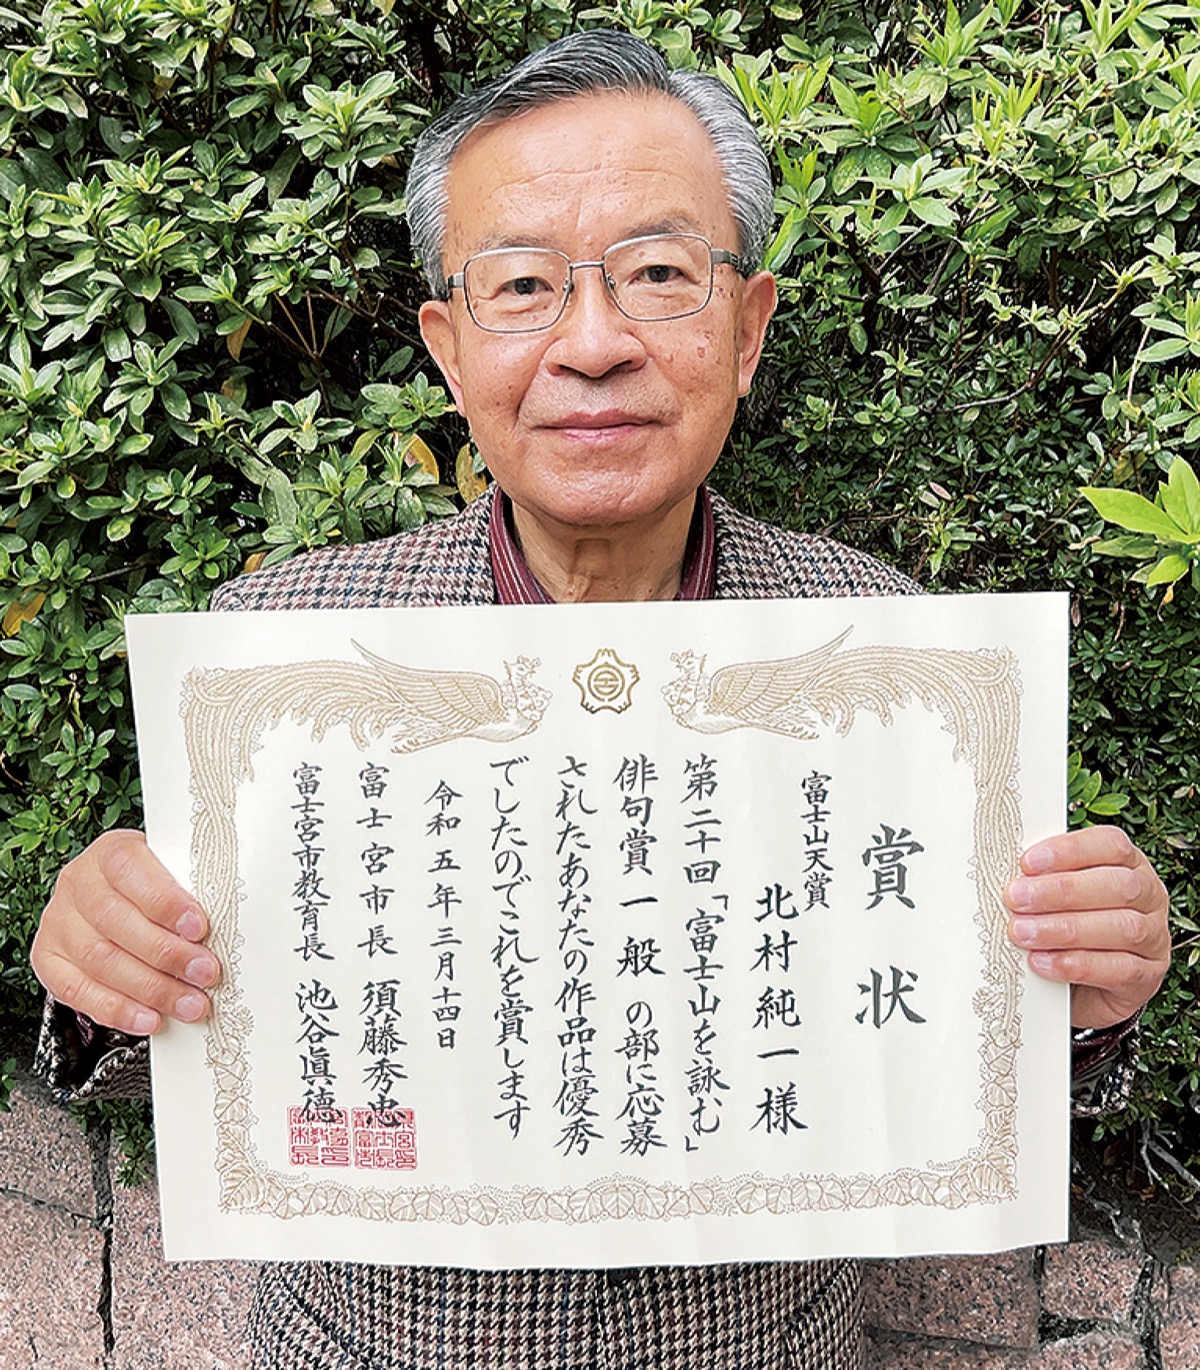 賞状
富士山天賞
北村純一様
第二十回「富士山を詠む」
俳句賞一般の部に応募
されたあなたの作品は優秀
でしたのでこれを賞します
令和五年三月十四日
富士宮市長 須藤秀忠
富士宮市教育長 池谷眞德